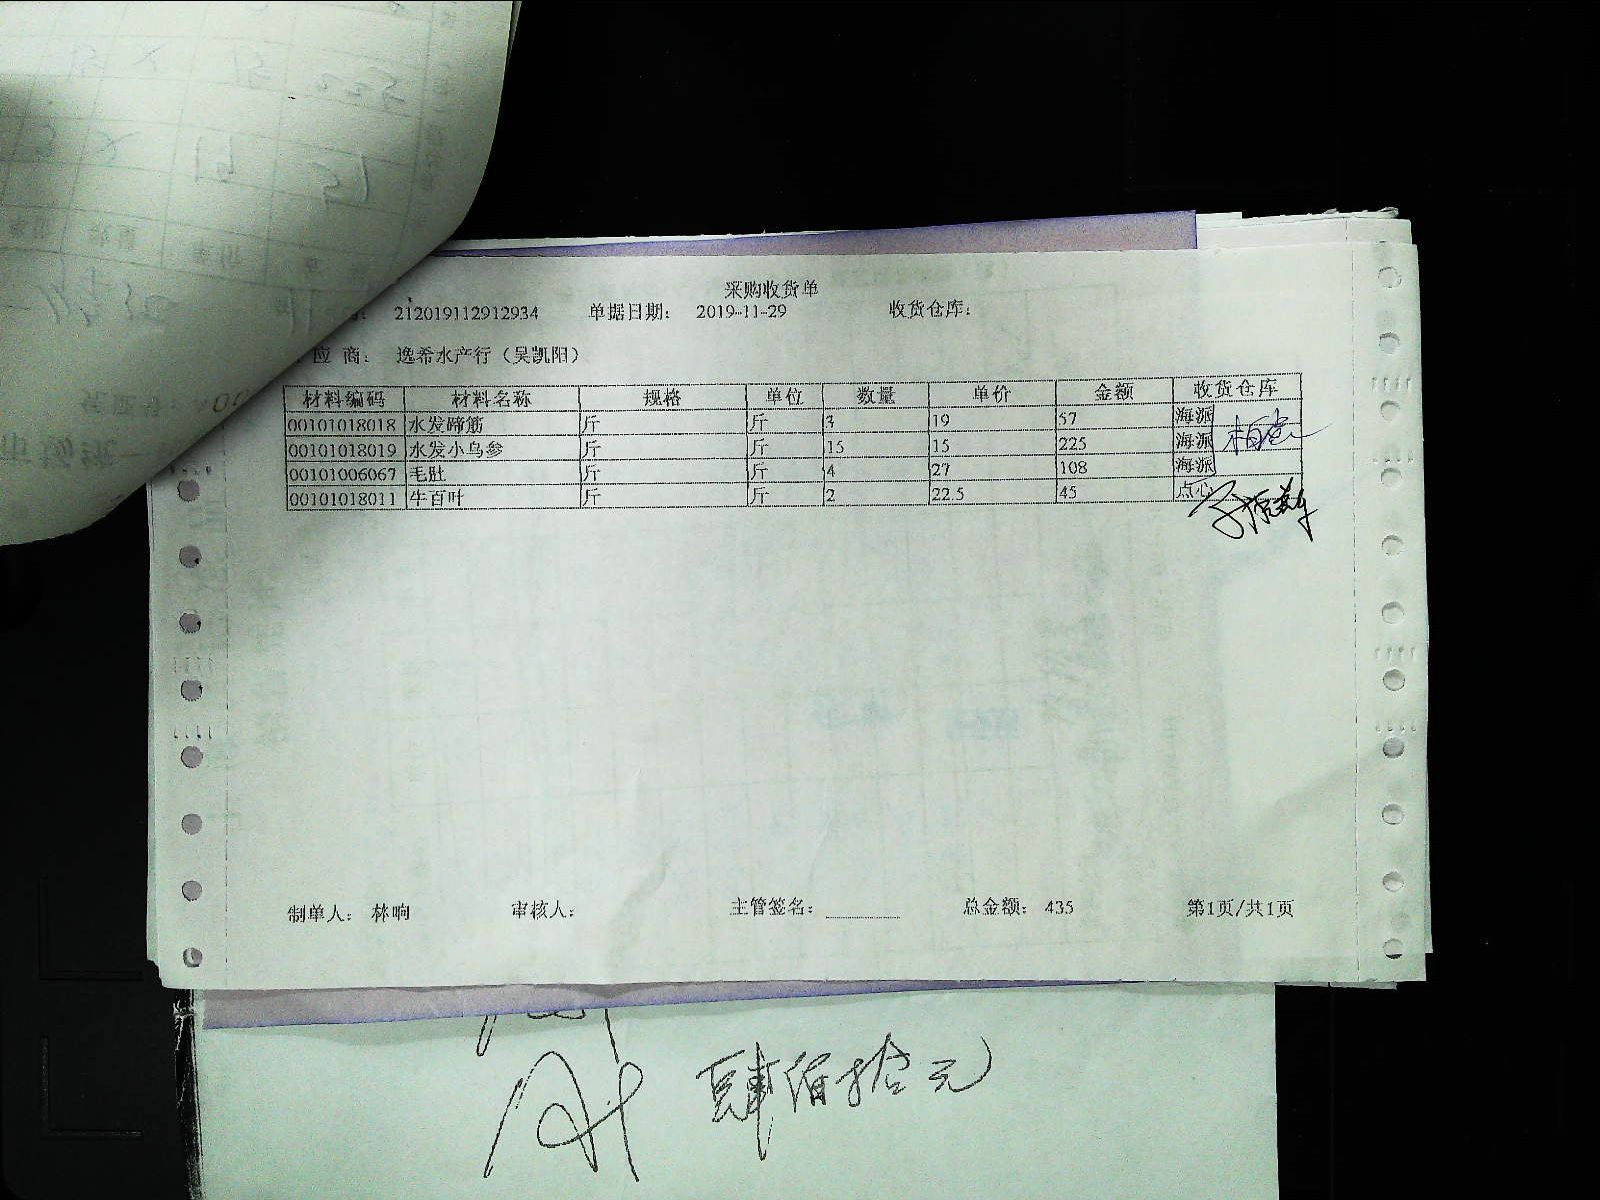 采购收货单
212019112912934 单据日期: 2019-11-29 收货仓库:
应 商: 逸希水产行（吴凯阳）
材料编码 材料名称 规格 单位 数量 单价 金额 收货仓库
00101018018 水发碲筋 斤 斤 3 19 57 海派
00101018019 水发小乌参 斤 斤 15 15 225 海派
00101006067 毛肚 斤 斤 4 27 108 海派
00101018011 牛百叶 斤 斤 2 22.5 45 点心
制单人: 林响 审核人: 主管签名: 总金额: 435 第1页/共1页
肆佰拾元